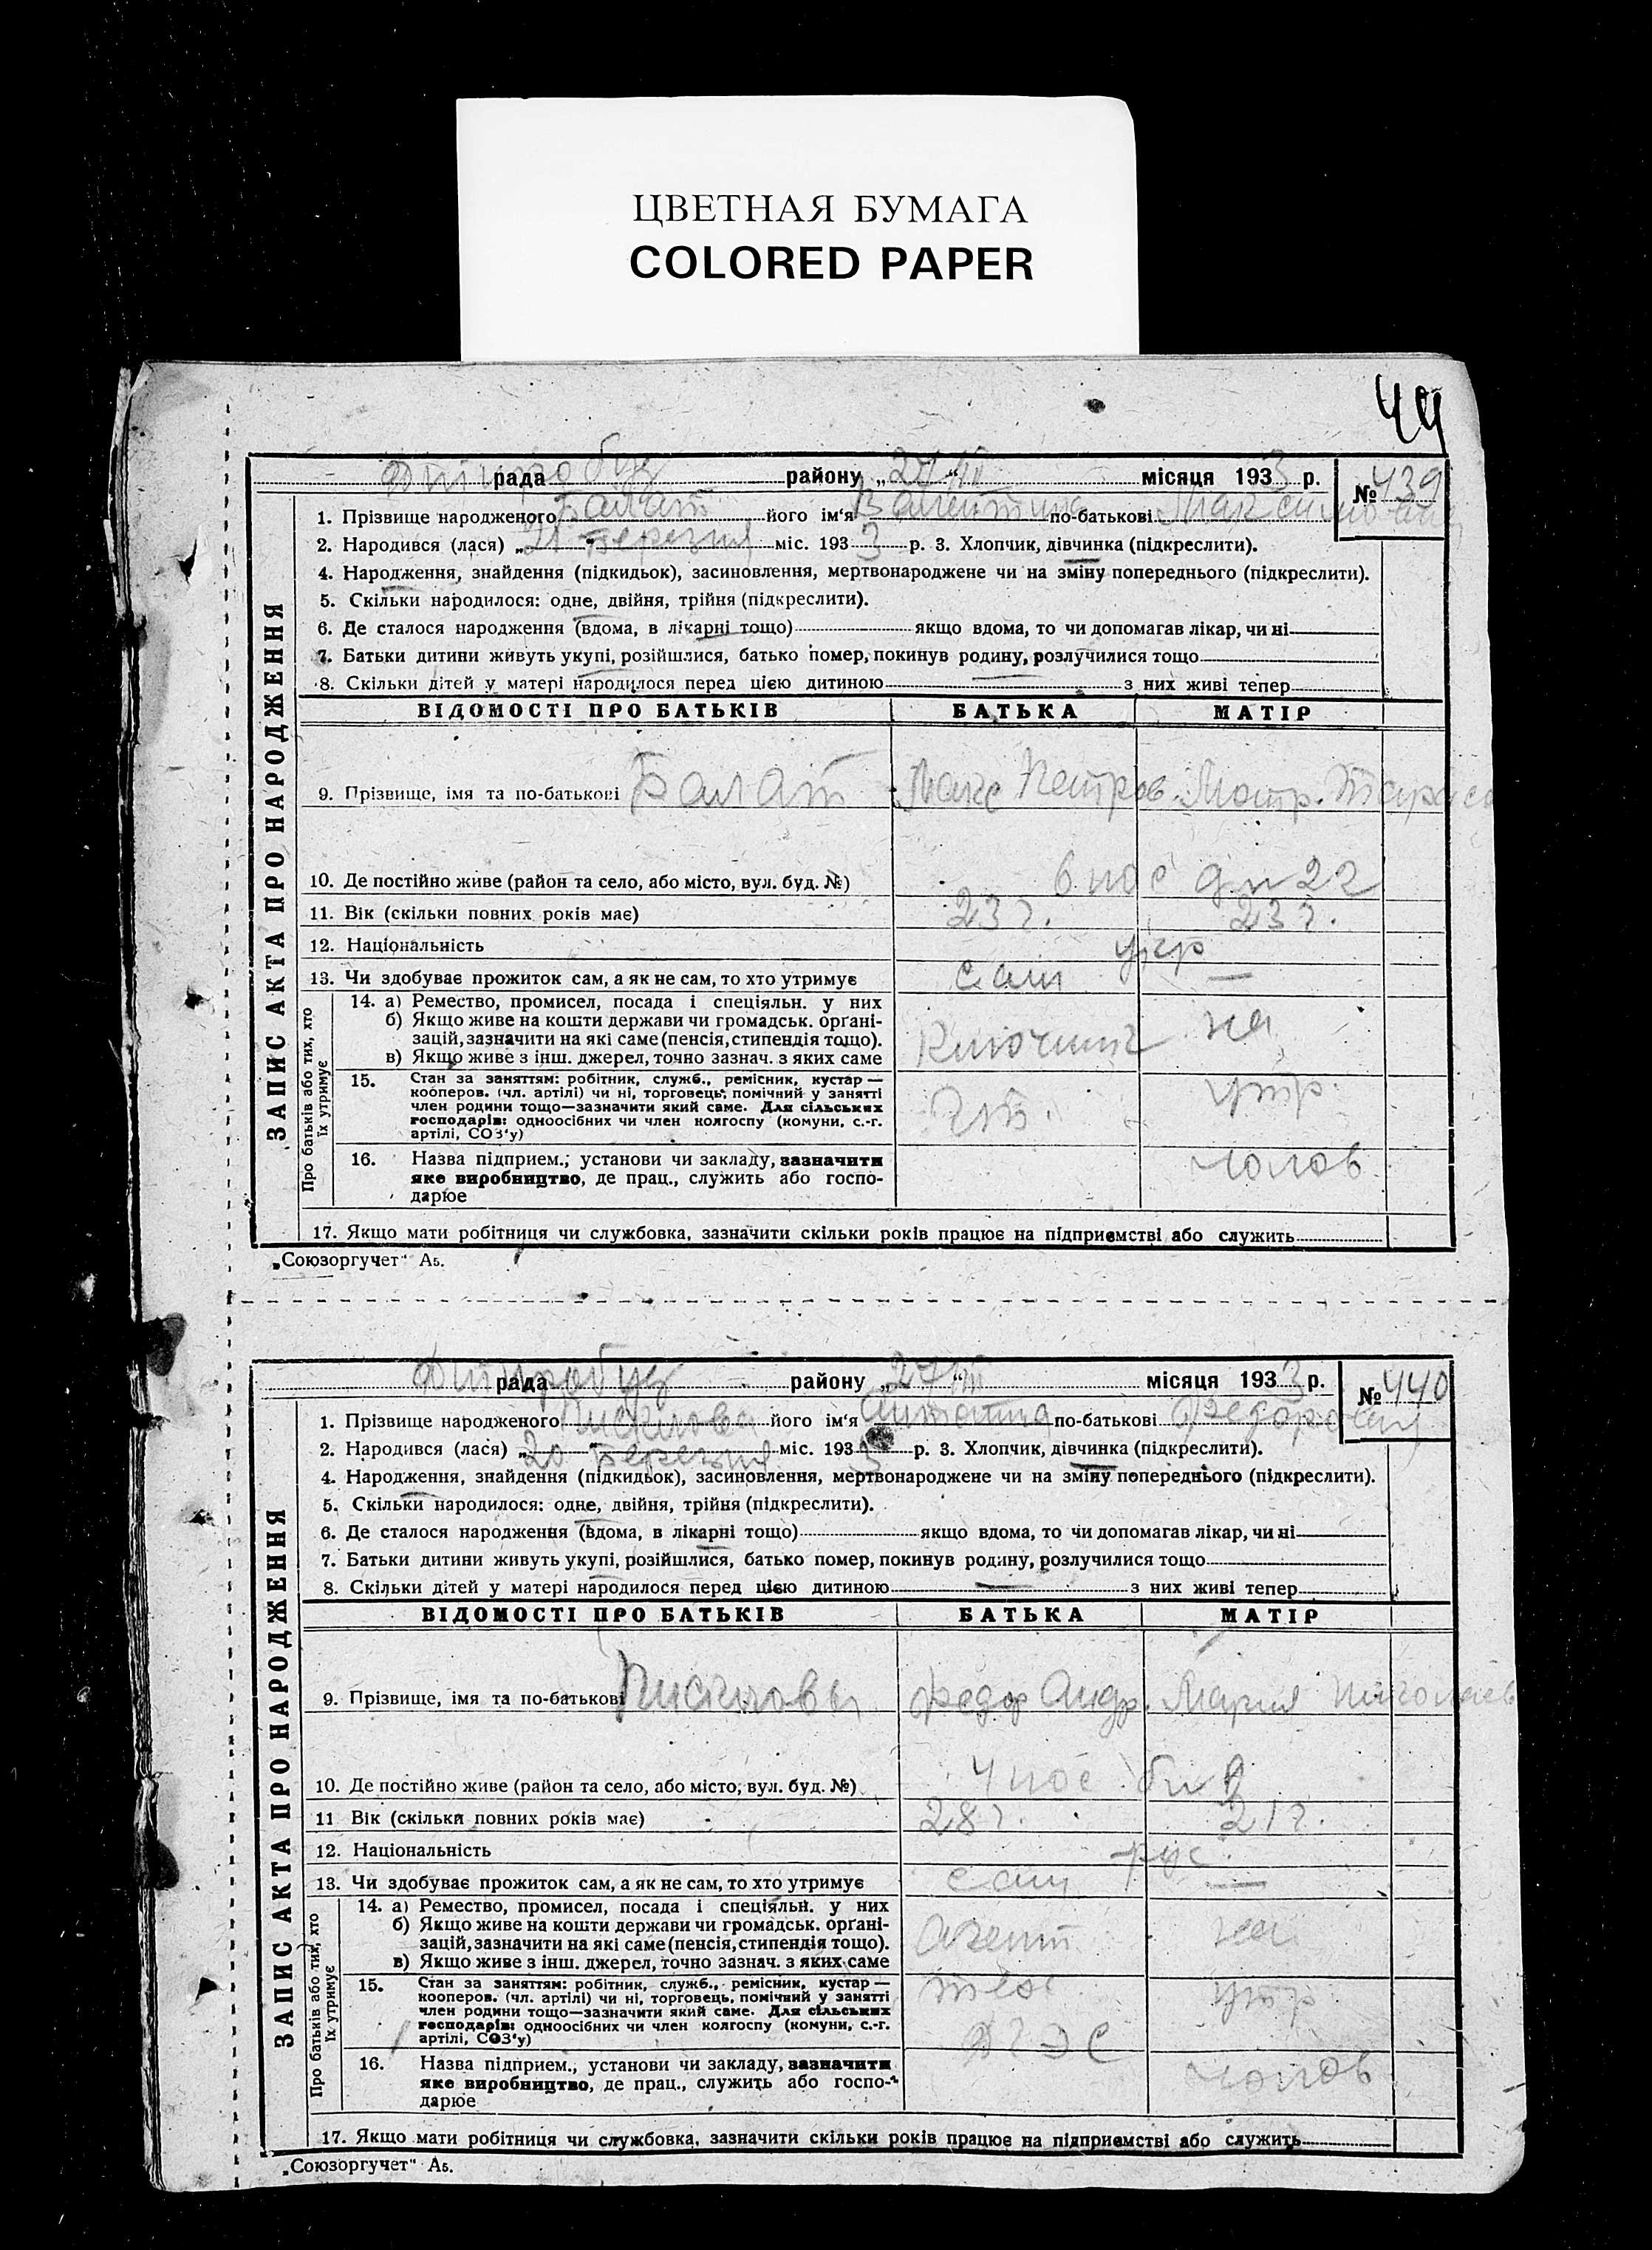 ЦВЕТНАЯ БУМАГА
COLORED PAPER
44
рада района „27/III“ місяця 1933 р. № 439
1. Прізвище народженого Балат його ім'я Валентина по-батькові
2. Народився (лася) „21“ березня міс. 1933 р. 3. Хлопчик, дівчинка (підкреслити).
4. Народження, знайдення (підкидьок), засиновлення, мертвонароджене чи на зміну попереднього (підкреслити).
5. Скільки народилося: одне, двійня, трійня (підкреслити).
6. Де сталося народження (вдома, в лікарні тощо) якщо вдома, то чи допомагав лікар, чи ні
7. Батьки дитини живуть укупі, розійшлися, батько помер, покинув родину, розлучилися тощо
8. Скільки дітей у матері народилося перед цією дитиною — з них живі тепер
ЗАПИС АКТА ПРО НАРОДЖЕННЯ
ВІДОМОСТІ ПРО БАТЬКІВ БАТЬКА МАТІР
9. Прізвище, імя та по-батькові Балат Макс Петров. Мотр. Тарасо
10. Де постійно живе (район та село, або місто, вул. буд. №) 6 пос
11. Вік (скільки повних років має) 23 г. 23 г.
12. Національність укр
13. Чи здобуває прожиток сам, а як не сам, то хто утримує сам —
Про батьків або тих, хто їх утримує
14. а) Ремество, промисел, посада і спеціяльн. у них
б) Якщо живе на кошти держави чи громадськ. орґані-
зацій, зазначити на які саме (пенсія, стипендія тощо).
в) Якщо живе з інш. джерел, точно зазнач. з яких саме
на
15. Стан за заняттям: робітник, служб., ремісник, кустар —
кооперов. (чл. артілі) чи ні, торговець, помічний у занятті
член родини тощо—зазначити який саме. Для сільських
господарів: одноосібних чи член колгоспу (комуни, с.-г.
артілі, СОЗ'у)
утр
16. Назва підприєм., установи чи закладу, зазначити
яке виробництво, де прац., служить або госпо-
дарює
чолов
17. Якщо мати робітниця чи службовка, зазначити скільки років працює на підприємстві або служить
„Союзоргучет“ А5.
рада району „27/III“ місяця 1933 р. № 440
1. Прізвище народженого його ім'я по-батькові
2. Народився (лася) „20“ березня міс. 1933 р. 3. Хлопчик, дівчинка (підкреслити).
4. Народження, знайдення (підкидьок), засиновлення, мертвонароджене чи на зміну попереднього (підкреслити).
5. Скільки народилося: одне, двійня, трійня (підкреслити).
6. Де сталося народження (вдома, в лікарні тощо) якщо вдома, то чи допомагав лікар, чи ні
7. Батьки дитини живуть укупі, розійшлися, батько помер, покинув родину, розлучилися тощо
8. Скільки дітей у матері народилося перед цією дитиною — з них живі тепер
ЗАПИС АКТА ПРО НАРОДЖЕННЯ
ВІДОМОСТІ ПРО БАТЬКІВ БАТЬКА МАТІР
9. Прізвище, імя та по-батькові Федор Андр. Мария Николаев
10. Де постійно живе (район та село, або місто, вул. буд. №) 4 пос
11 Вік (скільки повних років має) 28 г. 21 г.
12. Національність рус.
13. Чи здобуває прожиток сам, а як не сам, то хто утримує сам —
Про батьків або тих, хто їх утримує
14. а) Ремество, промисел, посада і спеціяльн. у них
б) Якщо живе на кошти держави чи громадськ. орґані-
зацій, зазначити на які саме (пенсія, стипендія тощо).
в) Якщо живе з інш. джерел, точно зазнач. з яких саме
Агент на
15. Стан за заняттям: робітник, служб., ремісник, кустар —
кооперов. (чл. артілі) чи ні, торговець, помічний у занятті
член родини тощо—зазначити який саме. Для сільських
господарів: одноосібних чи член колгоспу (комуни, с.-г.
артілі, СОЗ'у)
утр
ДГЭС
16. Назва підприєм., установи чи закладу, зазначити
яке виробництво, де прац., служить або госпо-
дарює
чолов
17. Якщо мати робітниця чи службовка, зазначити скільки років працює на підприємстві або служить
„Союзоргучет“ А5.